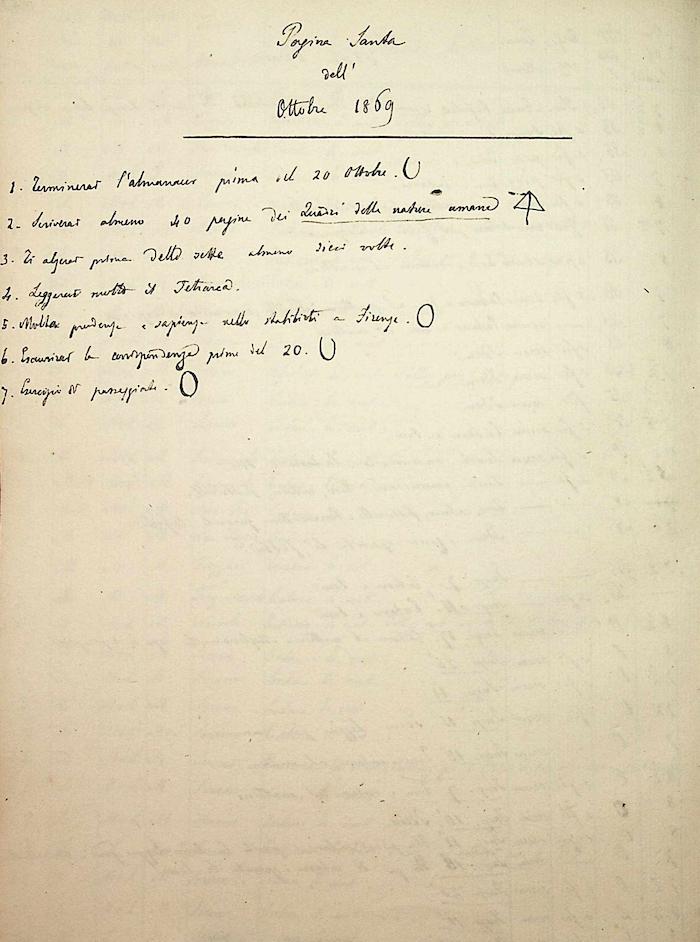 Pagina Santa
dell'
Ottobre 1869
1. Terminerai l'almanacco prima del 20 Ottobre.
2. Scriverai almeno 40 pagine dei Quadri della natura umana
3. Ti alzerai prima delle sette almeno dieci volte.
4. Leggerai molto il
5. Molta prudenza e sapienza nello stabilirti a Firenze.
6. Esaurirai la corrispondenza prima del 20.
7. Esercizio di passeggiate.